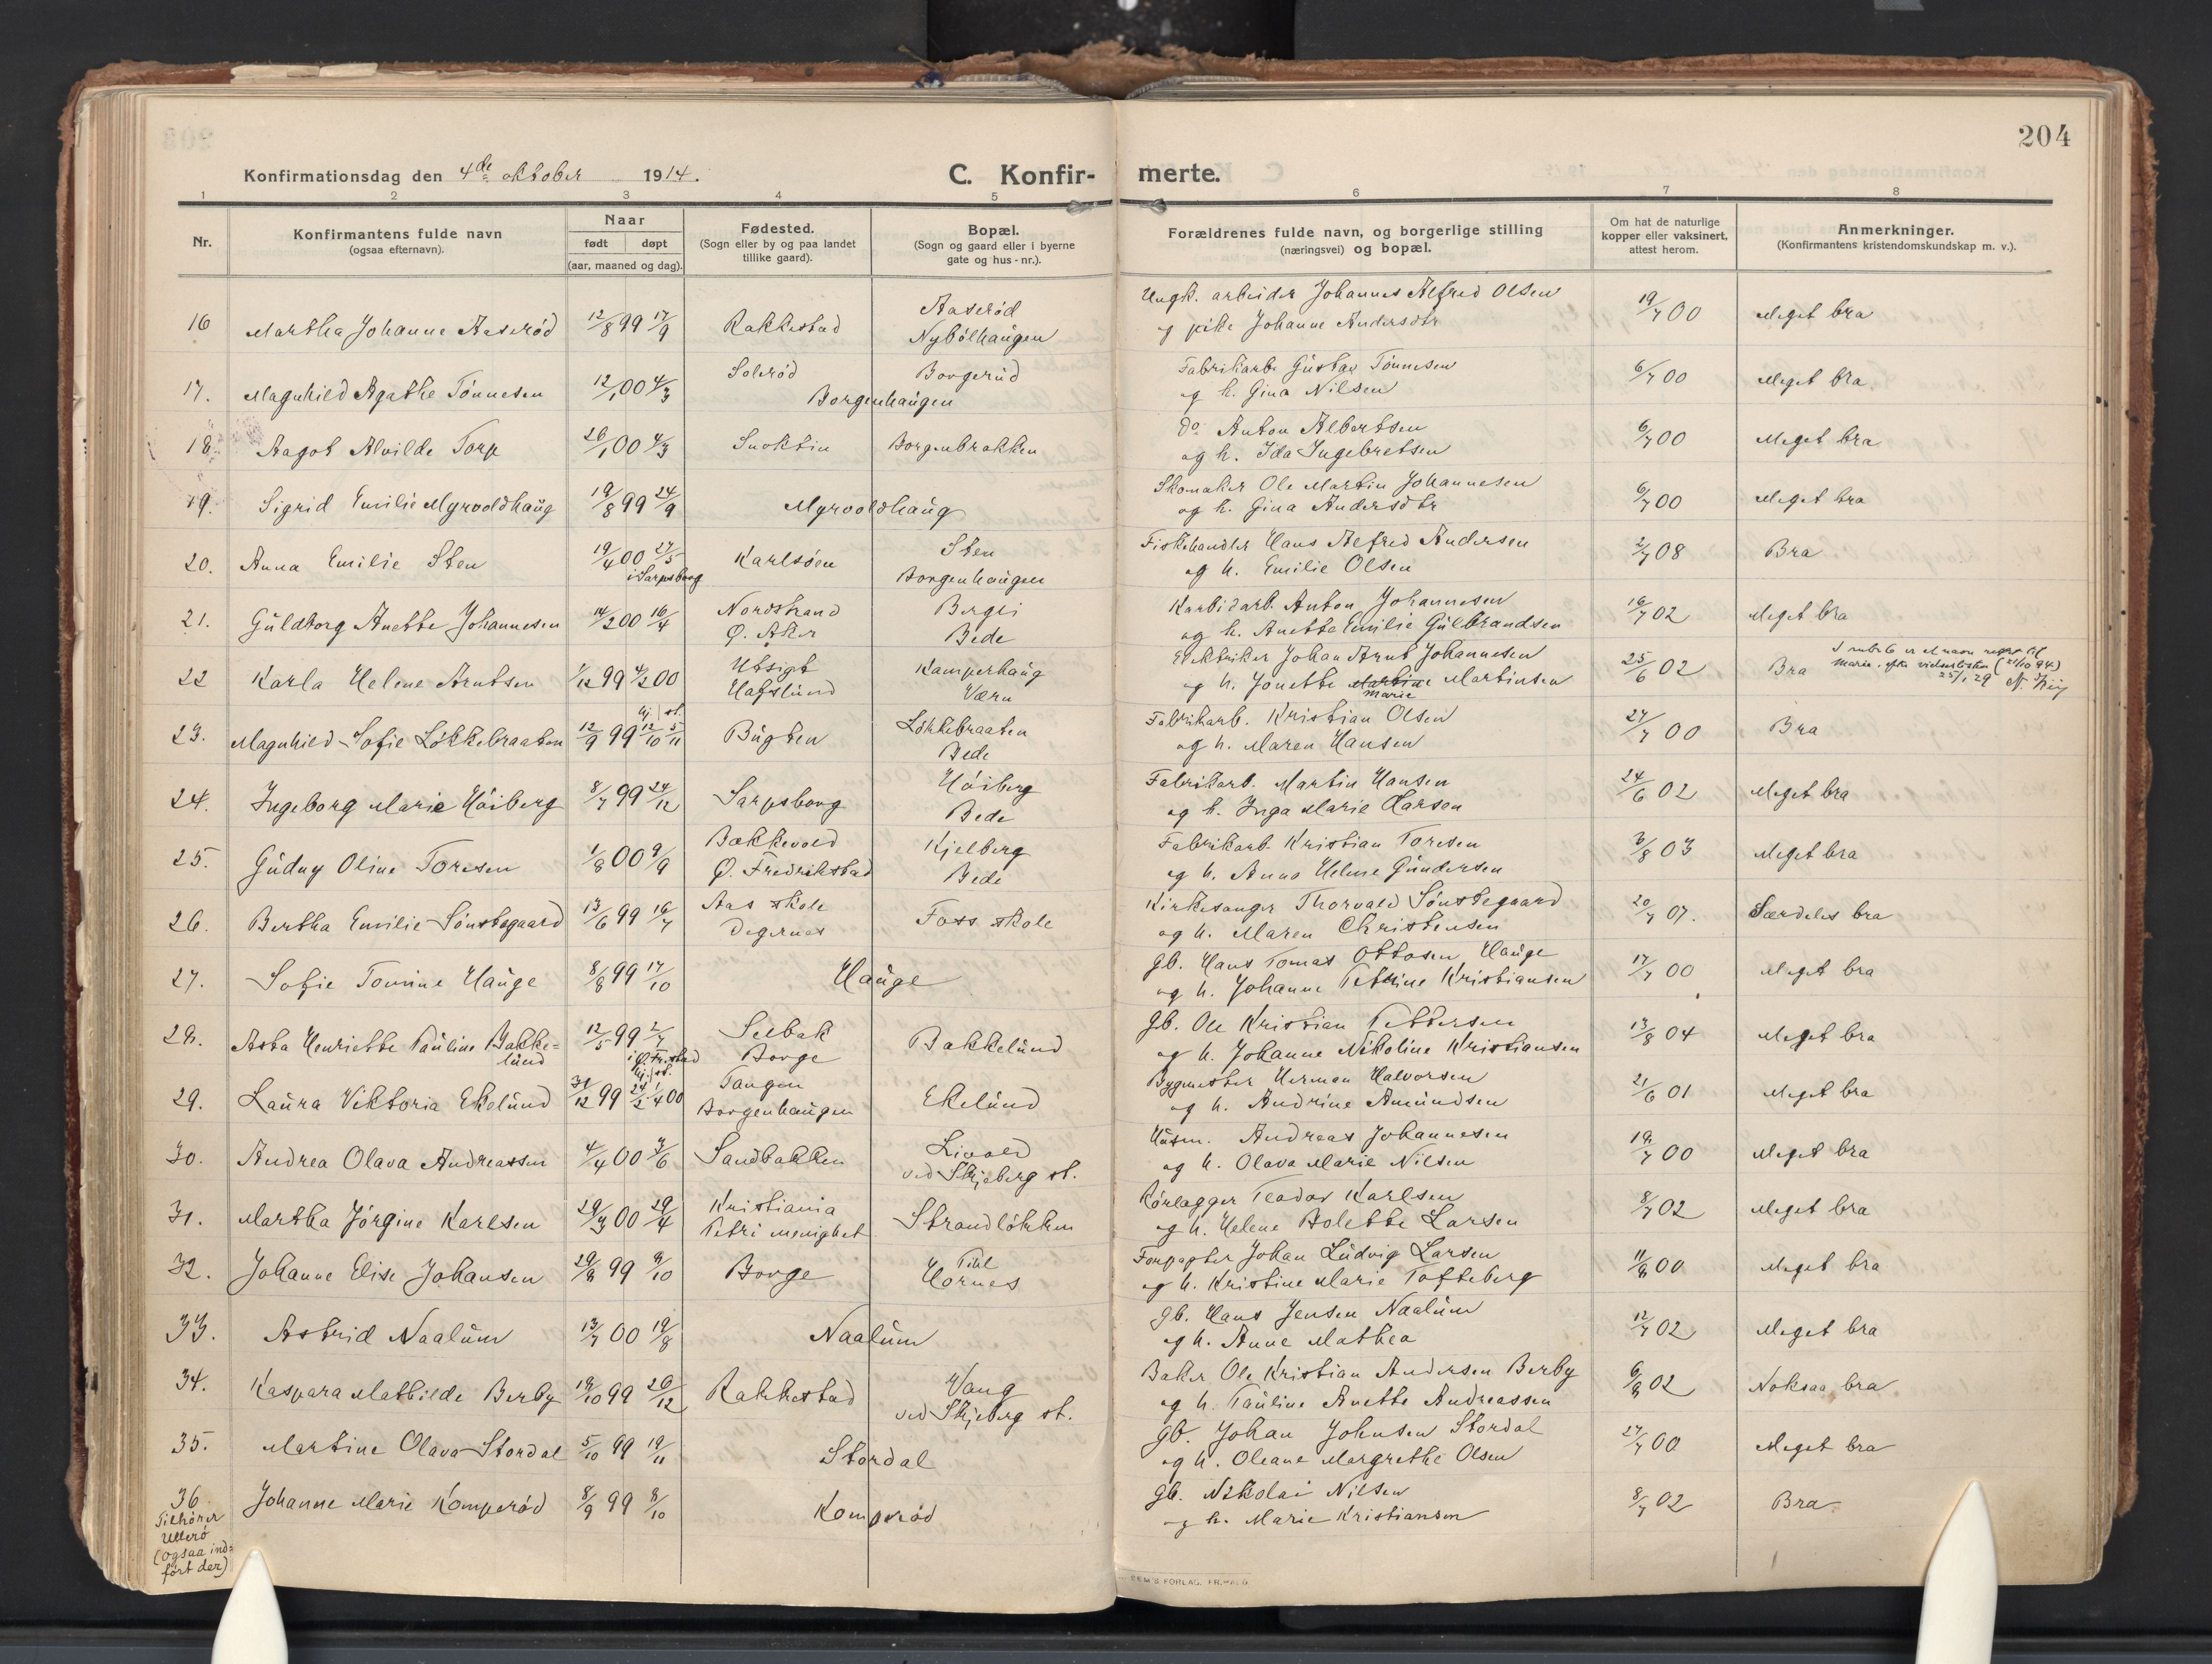 204
Konfirmationsdag den 4de oktober 1914.
C. Konfir-
merte.
1 2 3 4 5 6 7 8
Nr.
Konfirmantens fulde navn
(ogsaa efternavn).
Naar
født døpt
(aar, maaned og dag).
Fødested.
(Sogn eller by og paa landet
tillike gaard).
Bopæl.
(Sogn og gaard eller i byerne
gate og hus-nr.).
Forældrenes fulde navn, og borgerlige stilling
(næringsvei) og bopæl.
Om hat de naturlige
kopper eller vaksinert,
attest herom.
Anmerkninger.
(Konfirmantens kristendomskundskap m. v.).
Aaserød Ungk. arbeider Johannes Alfred Olsen
16 Martha Johanne Aaserød 12/8 99 17/9 Rakkestad Nybølhaugen og pike Johanne Andersdtr 19/7 00 Meget bra
Solerød Borgerud Fabrikarb. Gustav Tønnesen
17. Magnhild Agathe Tønnesen 12/1 00 4/3 Borgenhaugen og h. Gina Nilsen 6/7 00 Meget bra
do. Anton Albertsen
18. Aagot Alvilde Torp 26/1 00 4/3 Borgenbrakken og h. Ida Ingebretsen 6/7 00 Meget bra
Skomaker Ole Martin Johannesen
19. Sigrid Emilie Myrvoldhaug 19/8 99 24/9 Myrvoldhaug og h. Gina Andersdtr 6/7 00 Meget bra
Sten Fiskehandler Hans Alfred Andersen
20. Anna Emilie Sten 19/4 00 27/5 Karlsøen og h. Emilie Olsen 2/7 08 Bra
i Sarpsborg Borgenhaugen
Nordstrand Karbidarb. Anton Johannesen
21. Guldborg Anette Johannesen 14/2 00 16/4 Ø. Aker Bede og h. Anette Emilie Gulbrandsen 16/7 02 Meget bra
Utsigt Kamperhaug Elektriker Johan Arnt Johannesen
22 Karla Helene Arntsen 1/12 99 4/2 00 Hafslund Væren og h. Jonette Martine Martinsen 25/6 02 Bra
Marie
Marie, efter (21/10 94)
25/1 29
hj. st. Løkkebraaten Fabrikarb. Kristian Olsen
23. Magnhild Sofie Løkkebraaten 12/9 99 12/10 5/11 Bugten Bede og h. Maren Hansen 27/7 00 Bra
Høiberg Fabrikarb. Martin Hansen
24. Ingeborg Marie Høiberg 8/7 99 24/12 Sarpsborg Bede og h. Inga Marie Larsen 24/6 02 Meget bra
Bakkevold Kjelberg Fabrikarb. Kristian Toresen
25. Gudny Oline Toresen 1/8 00 9/9 Ø. Fredrikstad Bede og h. Anna Helene Gundersen 3/8 03 Meget bra
Aas skole Kirkesanger Thorvald Sønstegaard
26. Bertha Emilie Sønstegaard 13/6 99 16/7 Degernes Foss skole og h. Maren Christensen 20/7 07. Særdeles bra
gb. Hans Tomas Ottosen Hauge
27. Sofie Tomine Hauge 8/8 99 17/10 Hauge og h. Johanne Petrine Kristiansen 17/7 00 Meget bra
Selbak gb. Ole Kristian Pettersen
28. Asta Henriette Pauline Bakke= 12/5 99 2/7 Borge Bakkelund og h. Johanne Nikoline Kristiansen 13/8 04 Meget bra
lund i Ø. Fr.stad
hj. st. Tangen Bygmester Herman Halvorsen
29. Laura Viktoria Ekelund 31/12 99 24/2 1/4 00 Borgenhaugen Ekelund og h. Andrine Amundsen 21/6 01 Meget bra
Livold Husm. Andreas Johannesen
30. Andrea Olava Andreassen 4/4 00 3/6 Sandbakken ved Skjeberg st. og h. Olava Marie Nilsen 19/7 00 Meget bra
Kristiania Rørlægger Teodor Karlsen
31. Martha Jørgine Karlsen 29/3 00 29/4 Petri menighet Strandløkken og h. Helene Bolette Larsen 8/7 02 Meget bra
Forpagter Johan Ludvig Larsen
32. Johanne Elise Johansen 29/8 99 9/10 Borge Hornes og h. Kristine Marie Tofteberg 11/8 00 Meget bra
gb. Hans Jensen Naalum
33. Astrid Naalum 13/7 00 19/8 Naalum og h. Anne Mathea 12/7 02 Meget bra
Vang Baker Ole Kristian Andersen Berby
34. Kaspara Mathilde Berby 19/10 99 26/12 Rakkestad ved Skjeberg st. og h. Pauline Anette Andreassen 6/8 02 Noksaa bra
gb. Johan Johnsen Stordal
35. Martine Olava Stordal 5/10 99 19/11 Stordal og h. Oleane Margrethe Olsen 27/7 00 Meget bra
gb. Nikolai Nilsen
36 Johanne Marie Komperød 8/9 99 8/10 Komperød og h. Marie Kristiansen 8/7 02 Bra
Tilhører
Ullerø
(ogsaa ind=
ført der)
FORLAG, FR.HALD